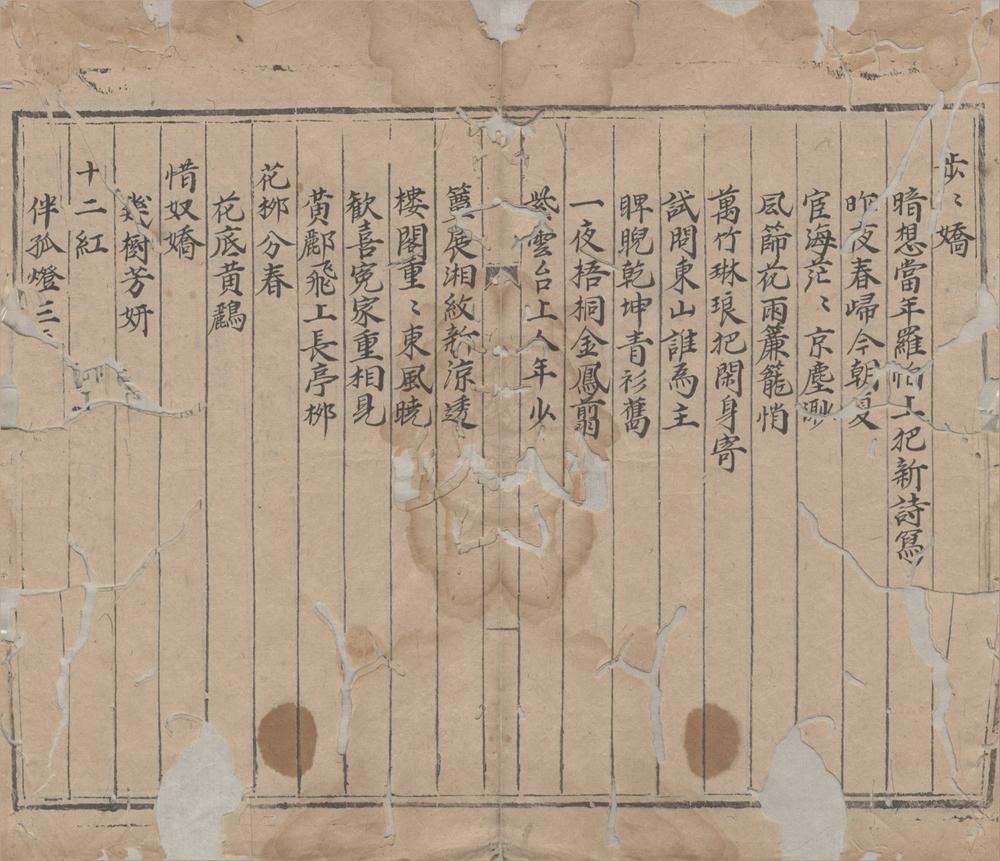 步〻嬌
暗想當年羅帕上把新詩寫
昨夜春歸今朝夏
宦海茫〻京塵渺
風篩花雨簾籠悄
萬竹琳琅把閑身寄
試問東山誰為主
睥睨乾坤青衫舊
一夜梧桐金鳳翦
紫雲台上人年少
簟展湘紋新涼透
樓閣重〻東風曉
歡喜寃家重相見
黃鸝飛上長亭柳
花柳分春
花底黃鸝
惜奴嬌
幾樹芳妍
十二紅
伴孤燈三〻